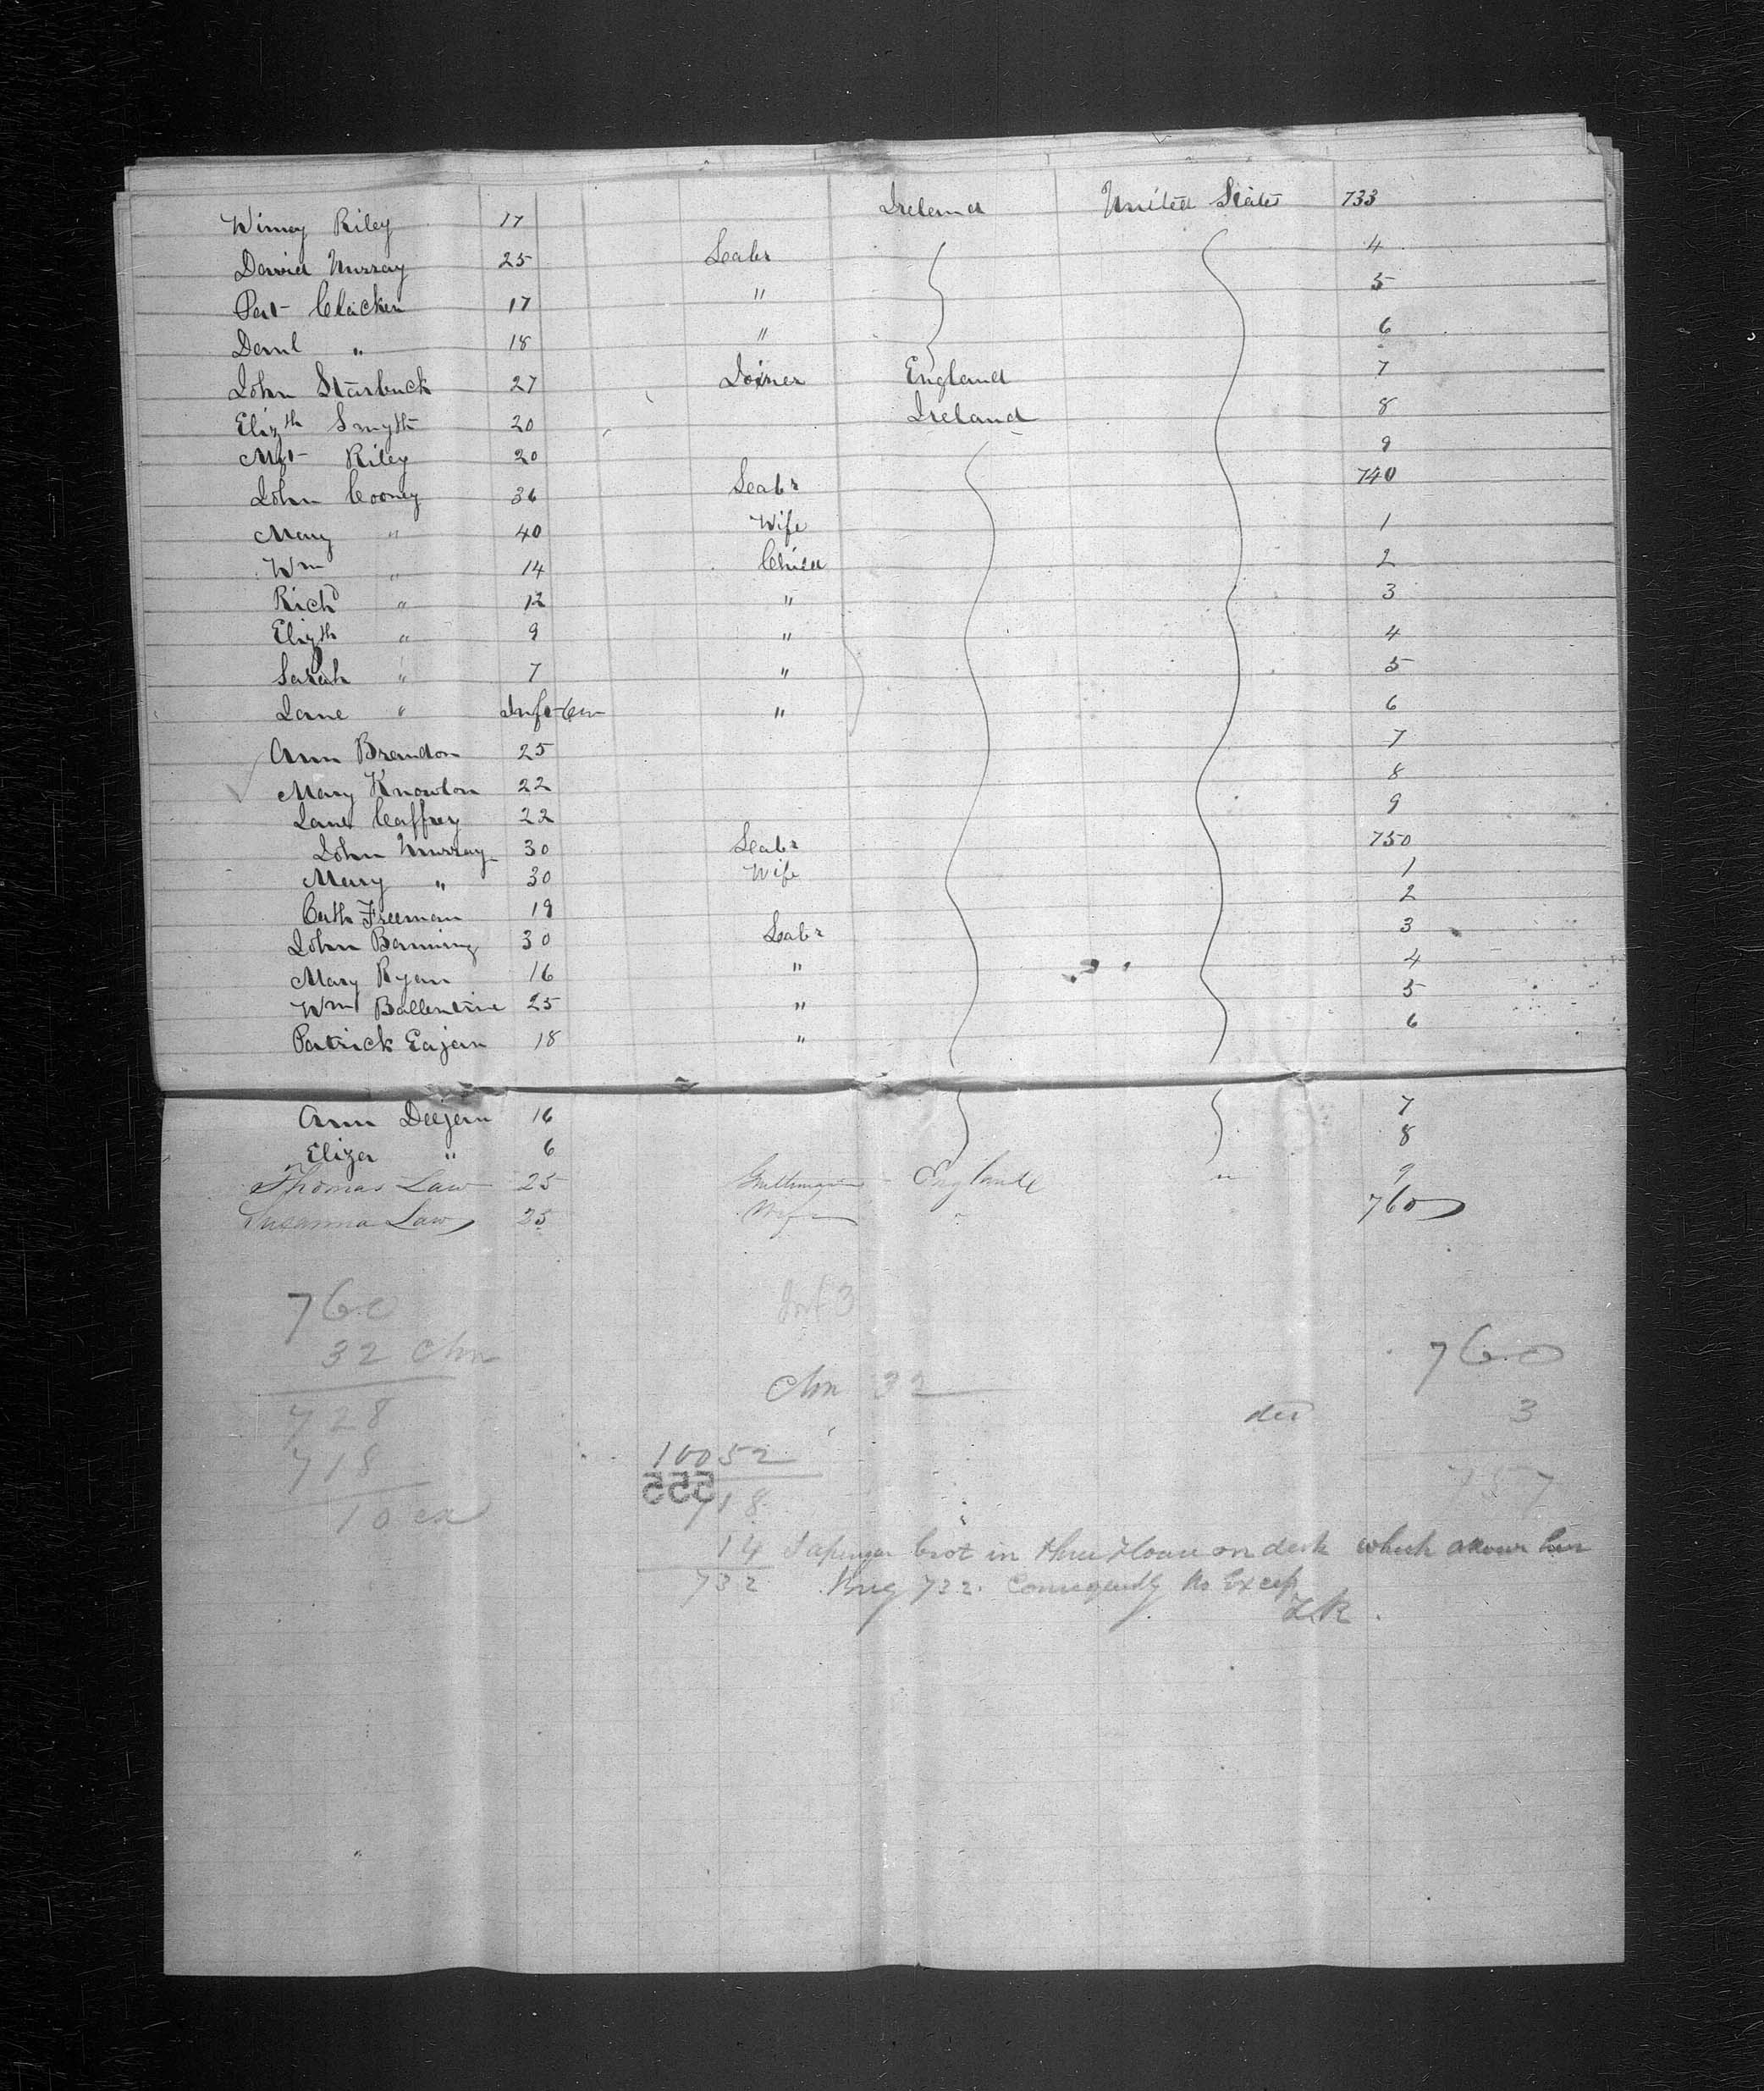 Winny Riley 17 Ireland United States 733
David Murray 25 Labr 4
Pat Clacken 17 " 5
Danl " 18 " 6
John Starbuck 27 Joiner England 7
Elizth Smyth 20 Ireland 8
Mgt Riley 20 9
John Cooney 36 Labr 740
Mary " 40 Wife 1
Wm " 14 Child 2
Richd " 12 " 3
Elizth " 9 " 4
Sarah " 7 " 5
Jane " Inft " 6
Ann Brandon 25 7
Mary Knowlon 22 8
Jane Caffrey 22 9
John Murray 30 Labr 750
Mary " 30 Wife 1
Cath Freeman 19 2
John Banning 30 Labr 3
Mary Ryan 16 " 4
Wm Ballentine 25 " 5
Patrick Eajan 18 " 6
Ann Deejan 16 7
Eliza " 6 8
Thomas Law 25 Gentleman England " 9
Susanna Law 25 Wife 760
760 Inf 3
32 Chn 760
Chn 32
728 ded 3
718 10052 757
555
10 ex 718
14 in three House on deck which
732 732. Consequently No Excess